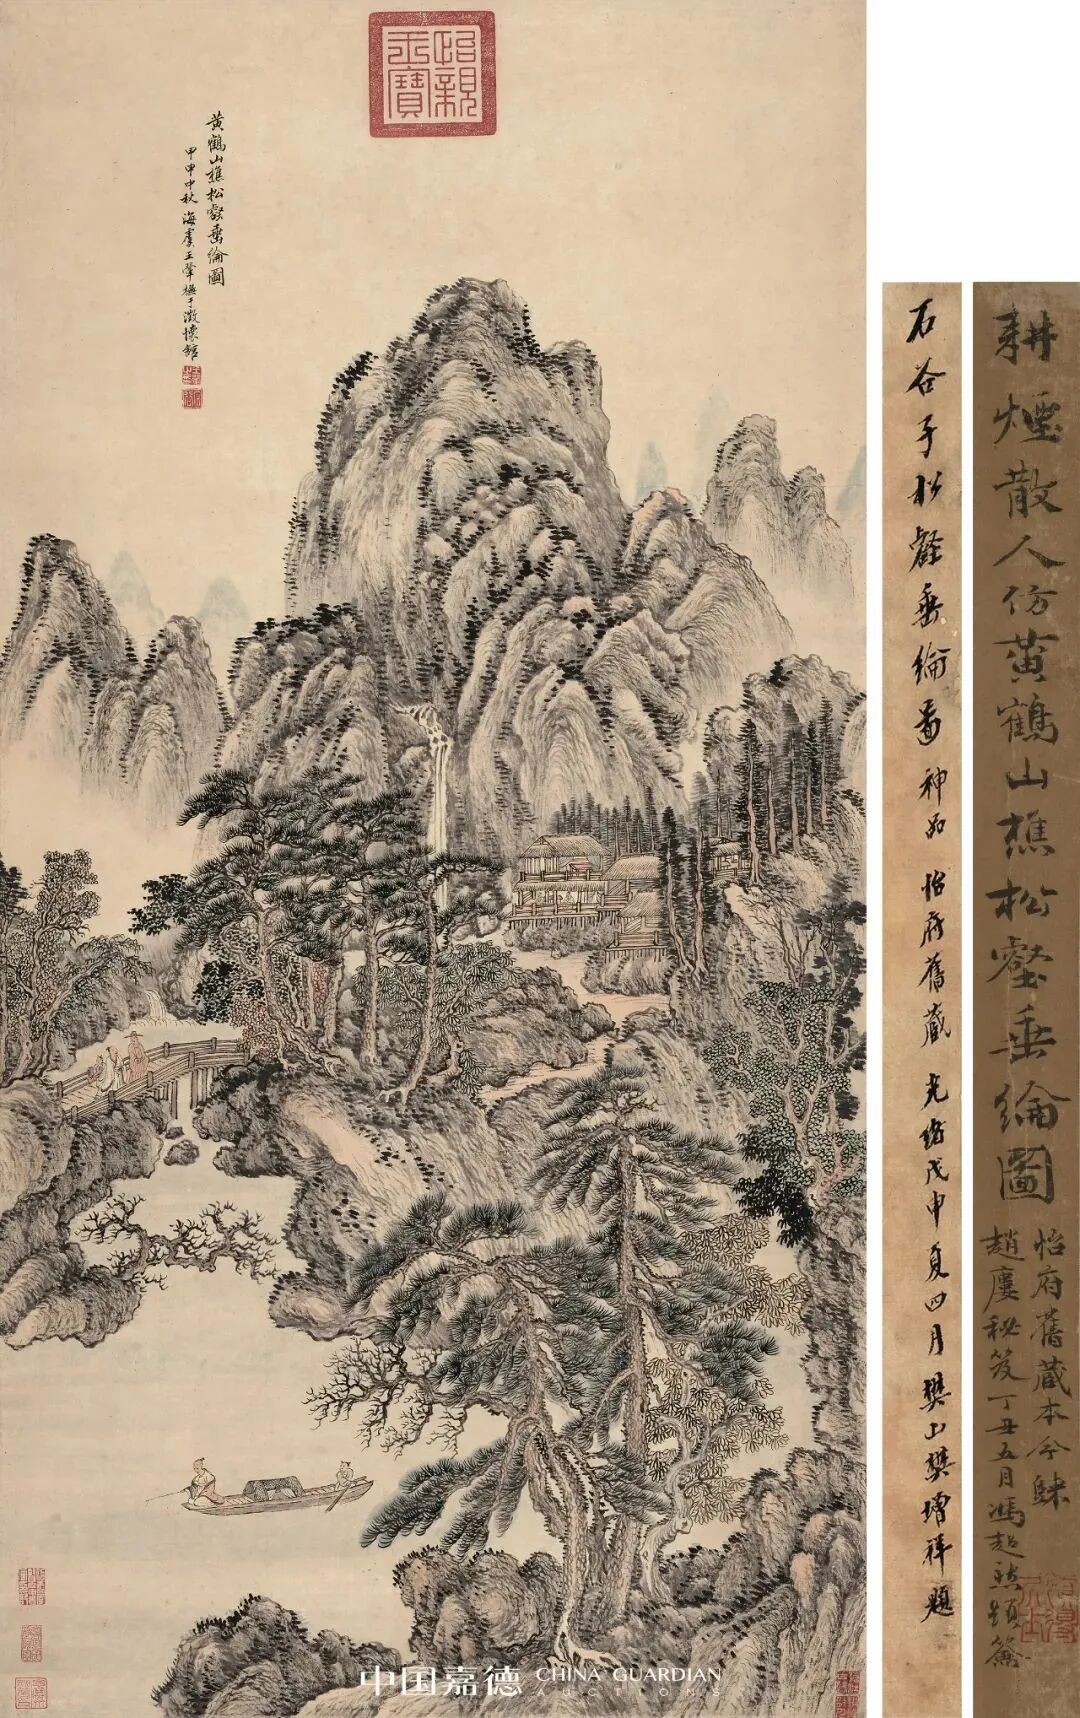 怡親王寶
黃鶴山樵松壑垂綸圖
甲申中秋海虞王翬橅于澂懷館
石谷子松壑垂綸圖 神品 怡府舊藏 光緒戊申夏四月樊山樊增祥題
耕煙散人仿黃鶴山樵松壑垂綸圖
怡府舊藏本今歸
趙廔秘笈丁丑五月馮超然題籤
中国嘉德 CHINA GUARDIAN
AUCTIONS